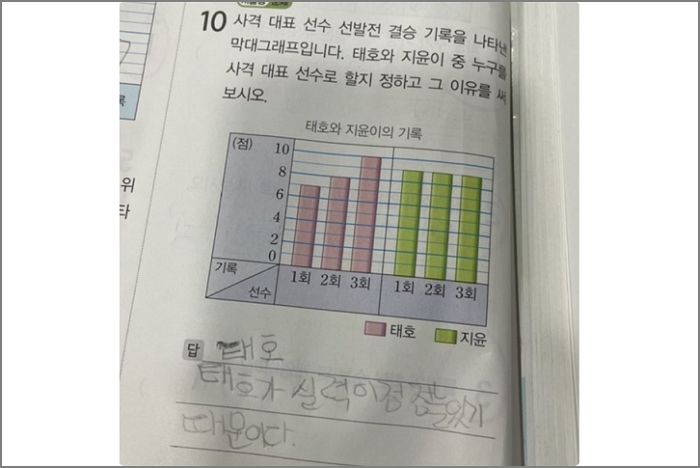 10 사격 대표 선수 선발전 결승 기록을 나타낸
막대그래프입니다. 태호와 지윤이 중 누구를
사격 대표 선수로 할지 정하고 그 이유를 써
보시오.
태호와 지윤이의 기록
(점)
10
8
6
4
2
0
기록
선수
1회 2회 3회 1회 2회 3회
태호 지윤
답 태호
태호가 실력이 점점 있기
때문이다.
위
타